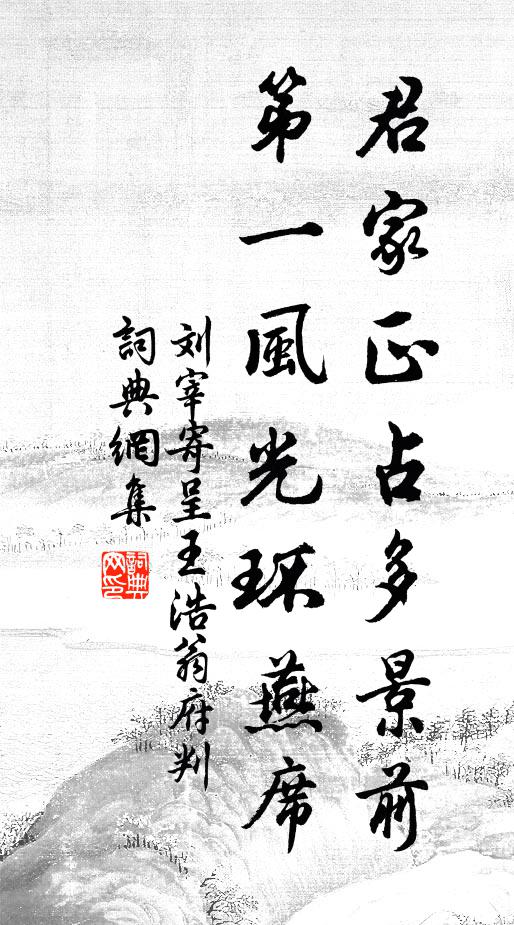 君家正占多景前
第一風光环燕席
刘宰寄呈王浩翁府判
詞典網集
詞典網印